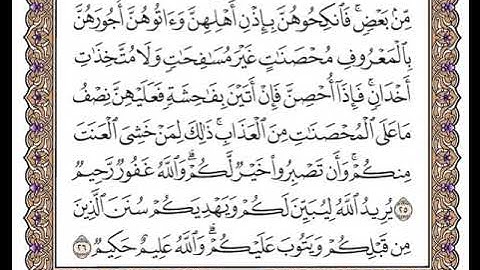 مِّنۢ بَعۡضٖۚ فَٱنكِحُوهُنَّ بِإِذۡنِ أَهۡلِهِنَّ وَءَاتُوهُنَّ أُجُورَهُنَّ
بِٱلۡمَعۡرُوفِ مُحۡصَنَٰتٍ غَيۡرَ مُسَٰفِحَٰتٖ وَلَا مُتَّخِذَٰتِ
أَخۡدَانٖۚ فَإِذَآ أُحۡصِنَّ فَإِنۡ أَتَيۡنَ بِفَٰحِشَةٖ فَعَلَيۡهِنَّ نِصۡفُ
مَا عَلَى ٱلۡمُحۡصَنَٰتِ مِنَ ٱلۡعَذَابِۚ ذَٰلِكَ لِمَنۡ خَشِيَ ٱلۡعَنَتَ
مِنكُمۡۚ وَأَن تَصۡبِرُواْ خَيۡرٞ لَّكُمۡۗ وَٱللَّهُ غَفُورٞ رَّحِيمٞ
٢٥ يُرِيدُ ٱللَّهُ لِيُبَيِّنَ لَكُمۡ وَيَهۡدِيَكُمۡ سُنَنَ ٱلَّذِينَ
مِن قَبۡلِكُمۡ وَيَتُوبَ عَلَيۡكُمۡۗ وَٱللَّهُ عَلِيمٌ حَكِيمٞ ٢٦